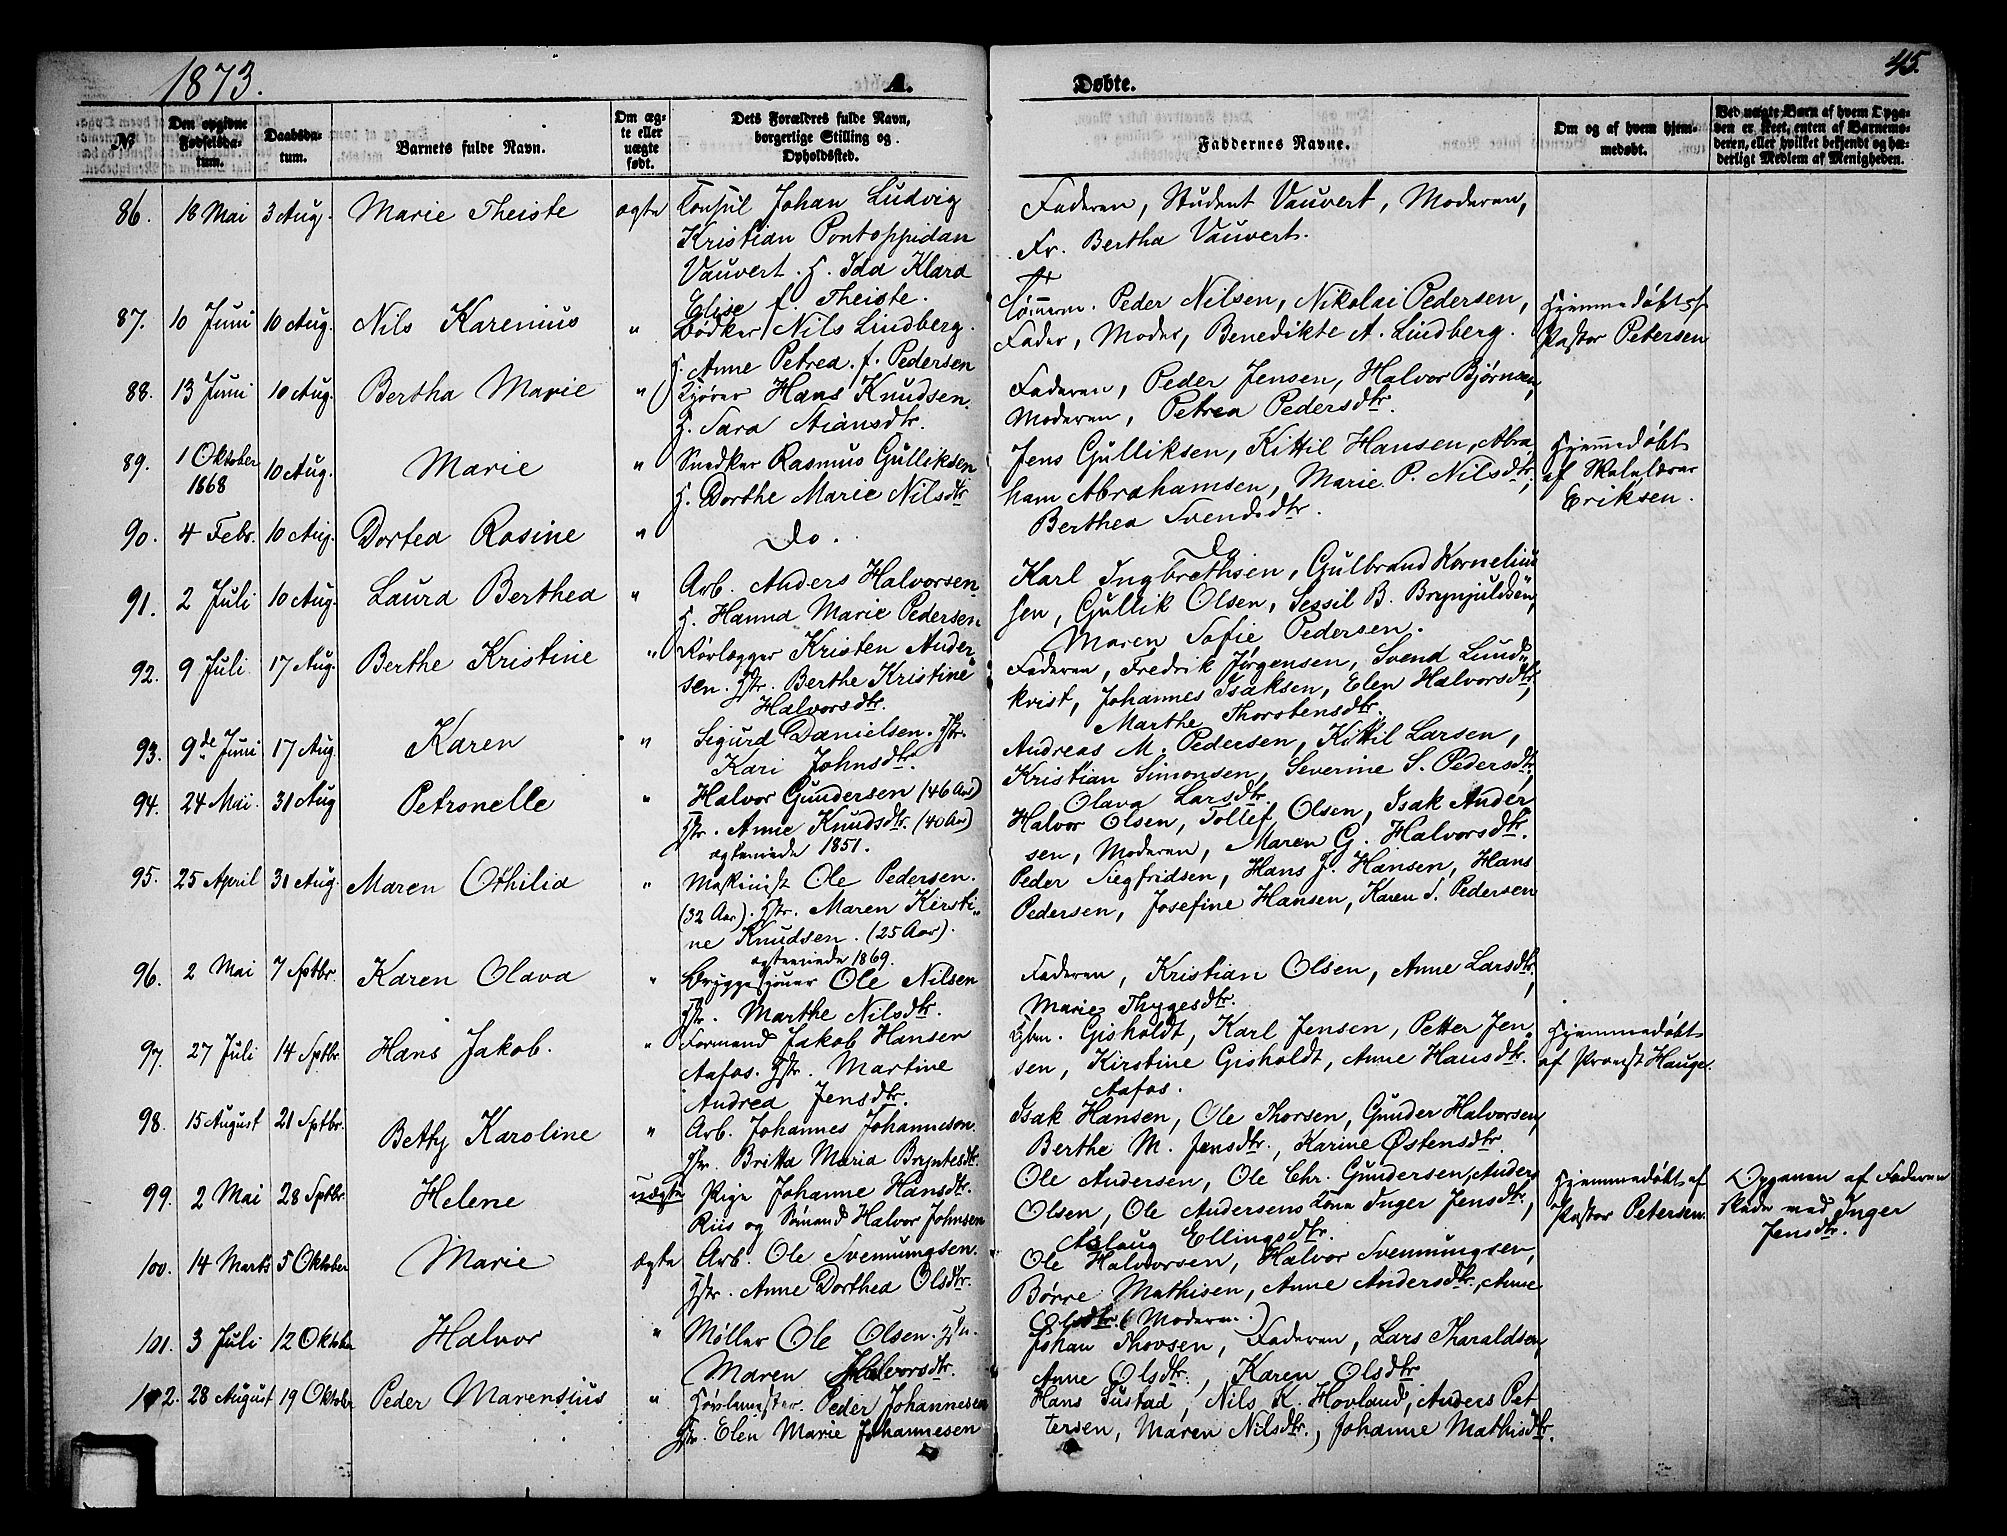 1873.
A.
Døbte.
45.
No
Den opgivne Fødselsdatum.
Daabsdatum.
Barnets fulde Navn.
Om ægte eller uægte født.
Dets Forældres fulde Navn, borgerlige Stilling og Opholdssted.
Faddernes Navne.
Om og af hvem hjemmedøbt.
Ved uægte Barn af hvem Opgaven er skeet, enten af Barnemoderen, eller hvilket bekjendt og hæderligt Medlem af Menigheden.
86. 18 Mai 3 Aug. Marie Theiste ægte Konsul Johan Ludvig
Kristian Pontoppidan
Vauvert. H. Ida Klara
Elise f. Theiste.
Faderen, Student Vauvert, Moderen,
Fr. Bertha Vauvert.
87. 10 Juni 10 Aug. Nils Karenius " Bødker Nils Lindberg.
H. Anne Petrea f. Pedersen
Tømerm. Peder Nilsen, Nikolai Pedersen,
Fader, Moder, Benedikte A. Lindberg.
Hjemmedøbt af
Pastor Petersen
88. 13 Juni 10 Aug. Bertha Marie " Kjører Hans Knudsen.
H. Sara Aiansdtr.
Faderen, Peder Jensen, Halvor Bjørnsen,
Moderen, Petrea Pedersdtr.
89. 1 Oktober 1868 10 Aug. Marie " Snedker Rasmus Gulliksen
H. Dorthe Marie Nilsdtr
Jens Gulliksen, Kittil Hansen, Abra
ham Abrahamsen, Marie P. Nilsdtr,
Berthea Svendsdtr.
Hjemedøbt
af Skolelærer
Eriksen.
90. 4 Febr. 10 Aug. Dortea Rosine " Do.
Do
91. 2 Juli 10 Aug. Laura Berthea " Arb. Anders Halvorsen
H. Hanna Marie Pedersen
Karl Ingbrethsen, Gulbrand Kornelius
sen, Gullik Olsen, Sessil B. Brynjuldsen,
Maren Sofie Pedersen.
92. 9 Juli 17 Aug. Berthe Kristine " Rørlægger Kristen Ander
sen. Hstr. Berthe Kristine
Halvorsdtr.
Faderen, Fredrik Jørgensen, Svend Lund
kvist, Johannes Isaksen, Elen Halvorsdtr,
Marthe Thorstensdtr.
93. 9de Juni 17 Aug Karen " Sigurd Danielsen. Hstr.
Kari Johnsdtr.
Andreas M. Pedersen, Kittil Larsen,
Kristian Simonsen, Severine S. Pedersdtr,
Olava Larsdtr.
94. 24 Mai. 31 Aug Petronelle " Halvor Gundersen (46 Aar)
Hstr. Anne Knudsdtr. (40 Aar)
ægteviede 1851.
Halvor Olsen, Tollef Olsen, Isak Ander
sen, Moderen, Maren G. Halvorsdtr.
95. 25 April 31 Aug. Maren Othilia " Maskinist Ole Pedersen.
(32 Aar). Hstr. Maren Kirsti„
ne Knudsen. (25 Aar).
ægteviede 1869.
Peder Siegfridsen, Hans J. Hansen, Hans
Pedersen, Josefine Hansen, Karen S. Pedersen
96. 2 Mai 7 Sptbr. Karen Olava " Bryggesjouer Ole Nilsen
Hstr. Marthe Nilsdtr.
Faderen, Kristian Olsen, Anne Larsdtr,
Marie Thygesdtr.
97. 27 Juli 14 Sptbr Hans Jakob. " Formand Jakob Hansen
Aafos. Hstr. Martine
Andrea Jensdtr.
Gisholdt, Karl Jensen, Petter Jen
sen, Kirstine Gisholdt, Anne Hansdtr.
Aafos.
Hjemmedøbt
af Provst Hauge.
98. 15 August 21 Sptbr. Bethy Karoline " Arb. Johannes Johanneson.
Hstr. Britta Maria Bryntesdtr.
Isak Hansen, Ole Thorsen, Gunder Halvorsen,
Berthe M. Jensdtr., Karine Østensdtr.
99. 2 Mai 28 Sptbr. Helene uægte Pige Johanne Hansdtr.
Riis og Sømand Halvor Johnsen
Ole Andersen, Ole Chr. Gundersen, Anders
Olsen, Ole Andersens Kone Inger Jensdtr,
Aslaug Ellingsdtr.
Hjemmedøbt af
Pastor Petersen.
Opgaven af Faderen
skede ved Inger
Jensdtr.
100. 14 Marts 5 Oktober Marie ægte Arb. Ole Svennungsen.
Hstr. Anne Dorthea Olsdtr.
Ole Halvorsen, Halvor Svennungsen,
Børre Mathisen, Anne Andersdtr, Anne
Olsdtr. (Moderen.)
101. 3 Juli 12 Oktober Halvor " Møller Ole Olsen.
Maren Halvorsdtr.
Johan Thovsen, Faderen, Lars Tharaldsen,
Anne Olsdtr., Karen Olsdtr
102. 28 August 19 Oktober Peder Marensius " Høvlemester Peder Johannesen
Hstr. Elen Marie Johannesen
Hans Sustad, Nils K. Hovland, Anders Pet
tersen, Maren Nilsdtr., Johanne Mathisdtr.